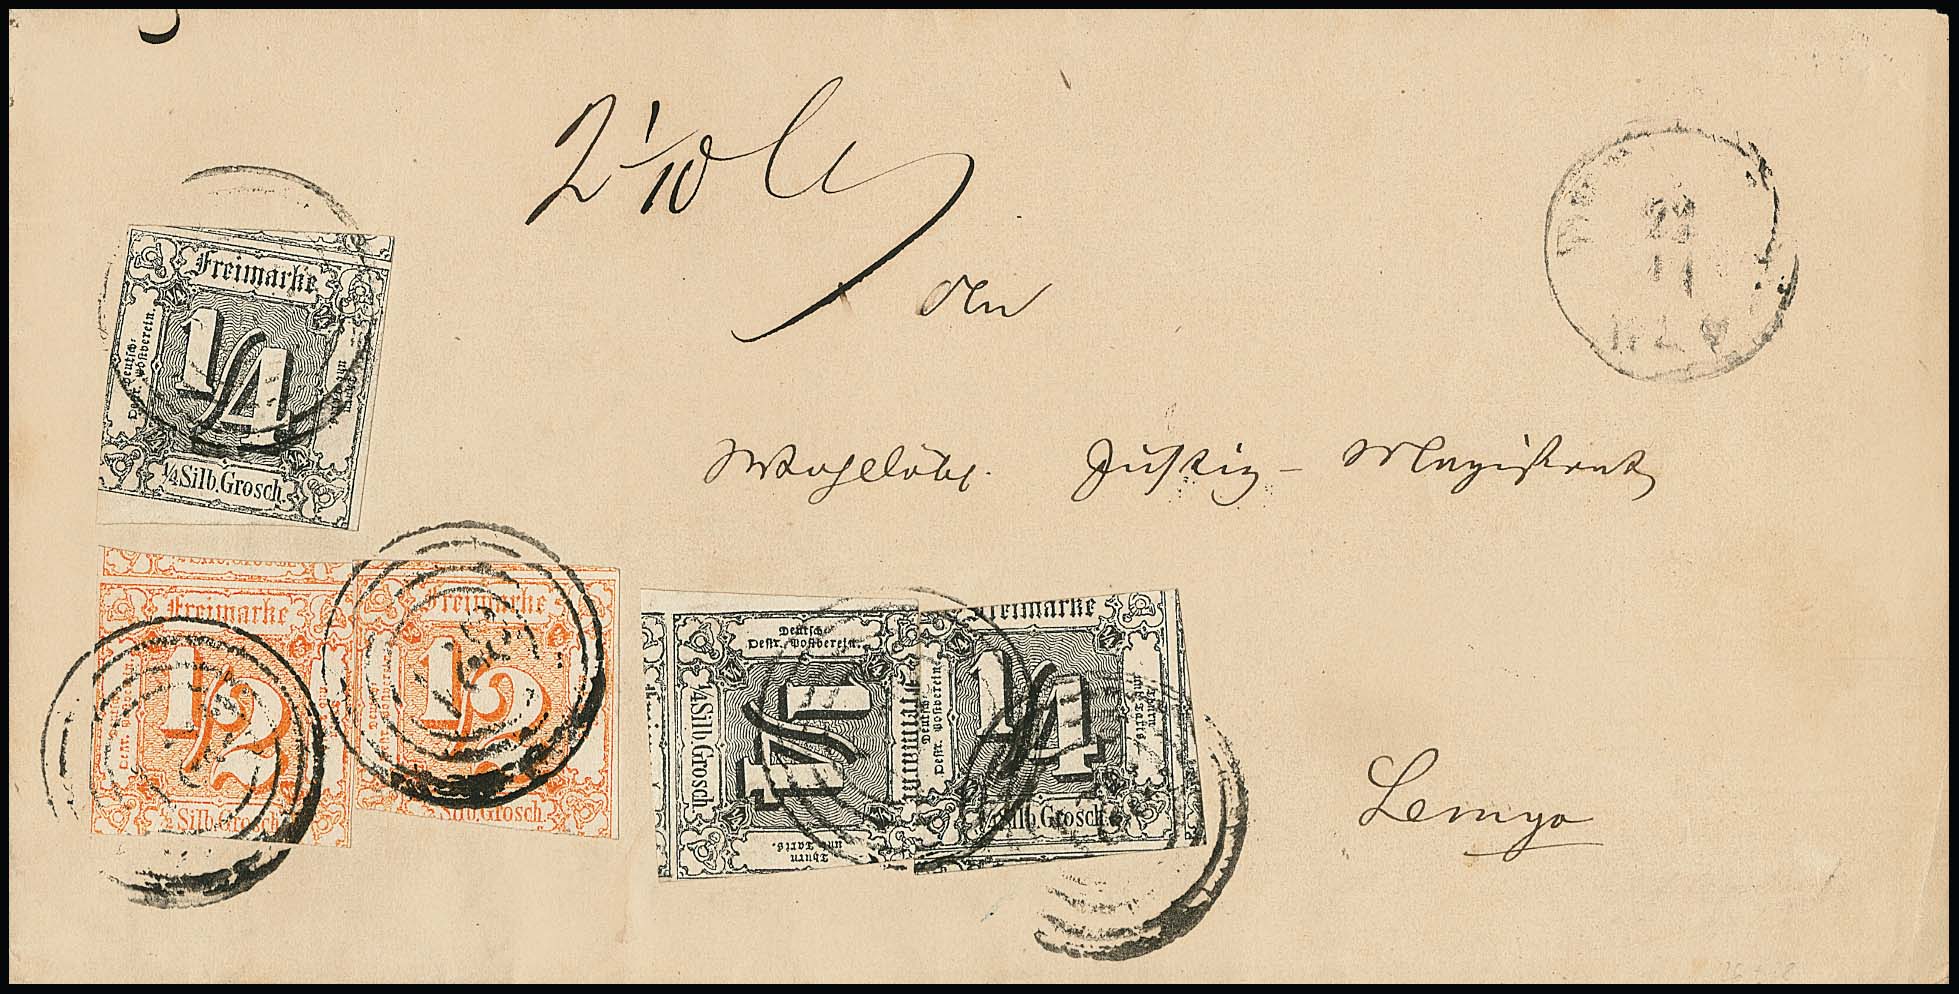 2 1/10
An
Wohllöbl. Justiz-Magistrat
Lemgo
22
11
Freimarke
1/4
Deutsch-
Oestr. Postverein.
und
¼ Silb. Grosch.
Freimarke
1/2
½ Silb. Grosch.
Freimarke
1/2
½ Silb. Grosch.
Deutsch-
Oestr. Postverein.
Freimarke
1/4
¼ Silb. Grosch.
Thurn
und Taxis.
Freimarke
Deutsch-
Oestr. Postverein.
1/4
Thurn
und Taxis.
¼ Silb. Grosch.